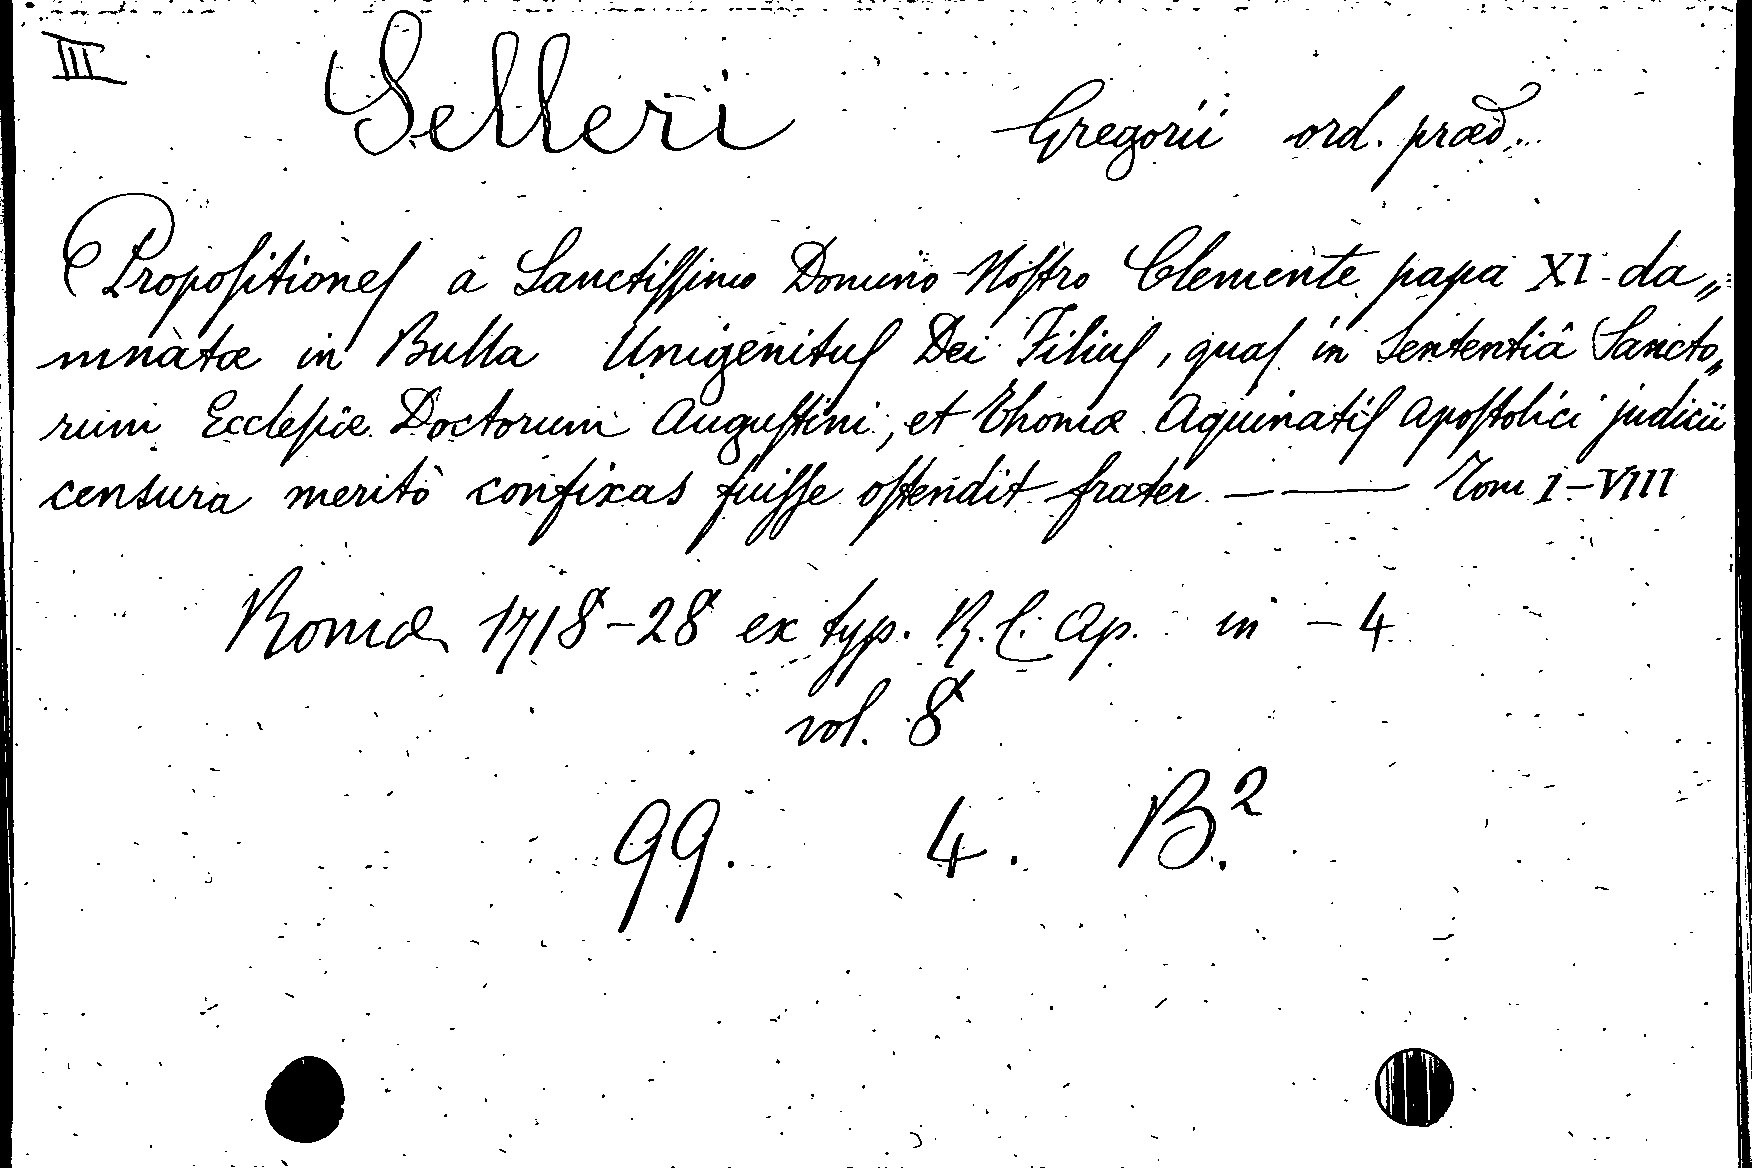 III Selleri Gregorii ord. præd.
Propoſitioneſ a Sanctiſſimo Domino Noſtro Clemente papa XI da„
mnatæ in Bulla Unigenituſ Dei Filiuſ, quaſ in Sententiâ Sancto„
rum Eccleſiæ Doctorum Auguſtini, et Thomæ Aquinatiſ Apoſtolici judicii
censura meritò confixas fuiſſe oſtendit frater —— Tom I–VIII
Romæ 1718–28 ex typ. R. C. Ap. in –4
vol. 8
99. 4. B.²